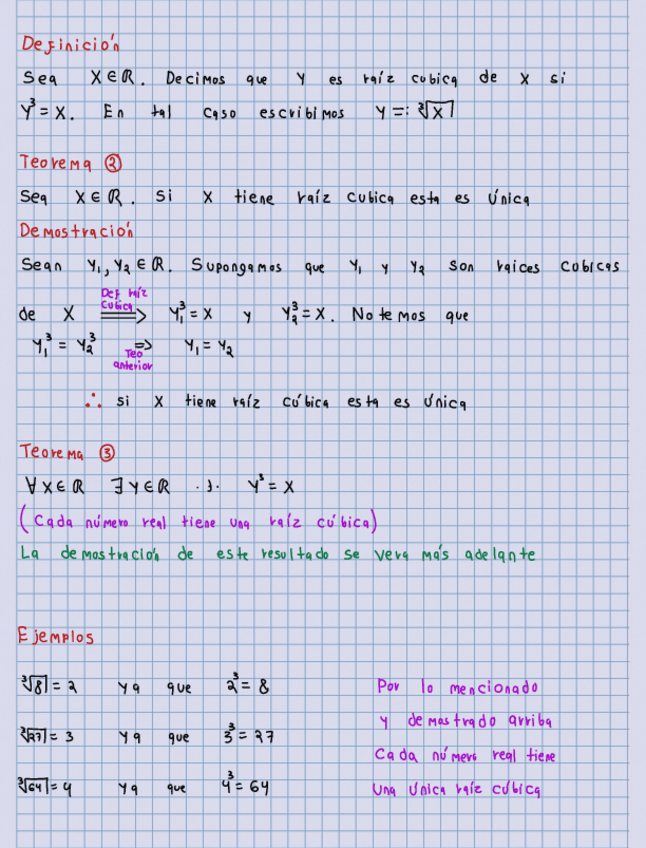 Definición
Sea X∈ℝ. Decimos que Y es raíz cubica de X si
Y³ = X. En tal caso escribimos Y =: ∛X
Teorema ②
Sea X∈ℝ. Si X tiene raíz cubica esta es única
Demostración
Sean Y₁, Y₂ ∈ ℝ. Supongamos que Y₁ y Y₂ son raices cubicas
Def raíz
cubica
de X ⟹ Y₁³ = X y Y₂³ = X. Notemos que
Y₁³ = Y₂³ ⟹ Y₁ = Y₂
Teo
anterior
∴ si X tiene raíz cúbica esta es única
Teorema ③
∀ X∈ℝ ∃ Y∈ℝ .). Y³ = X
(Cada número real tiene una raíz cúbica)
La demostración de este resultado se vera más adelante
Ejemplos
∛8 = 2 ya que 2³ = 8
∛27 = 3 ya que 3³ = 27
∛64 = 4 ya que 4³ = 64
Por lo mencionado
y demostrado arriba
Cada número real tiene
una única raíz cúbica